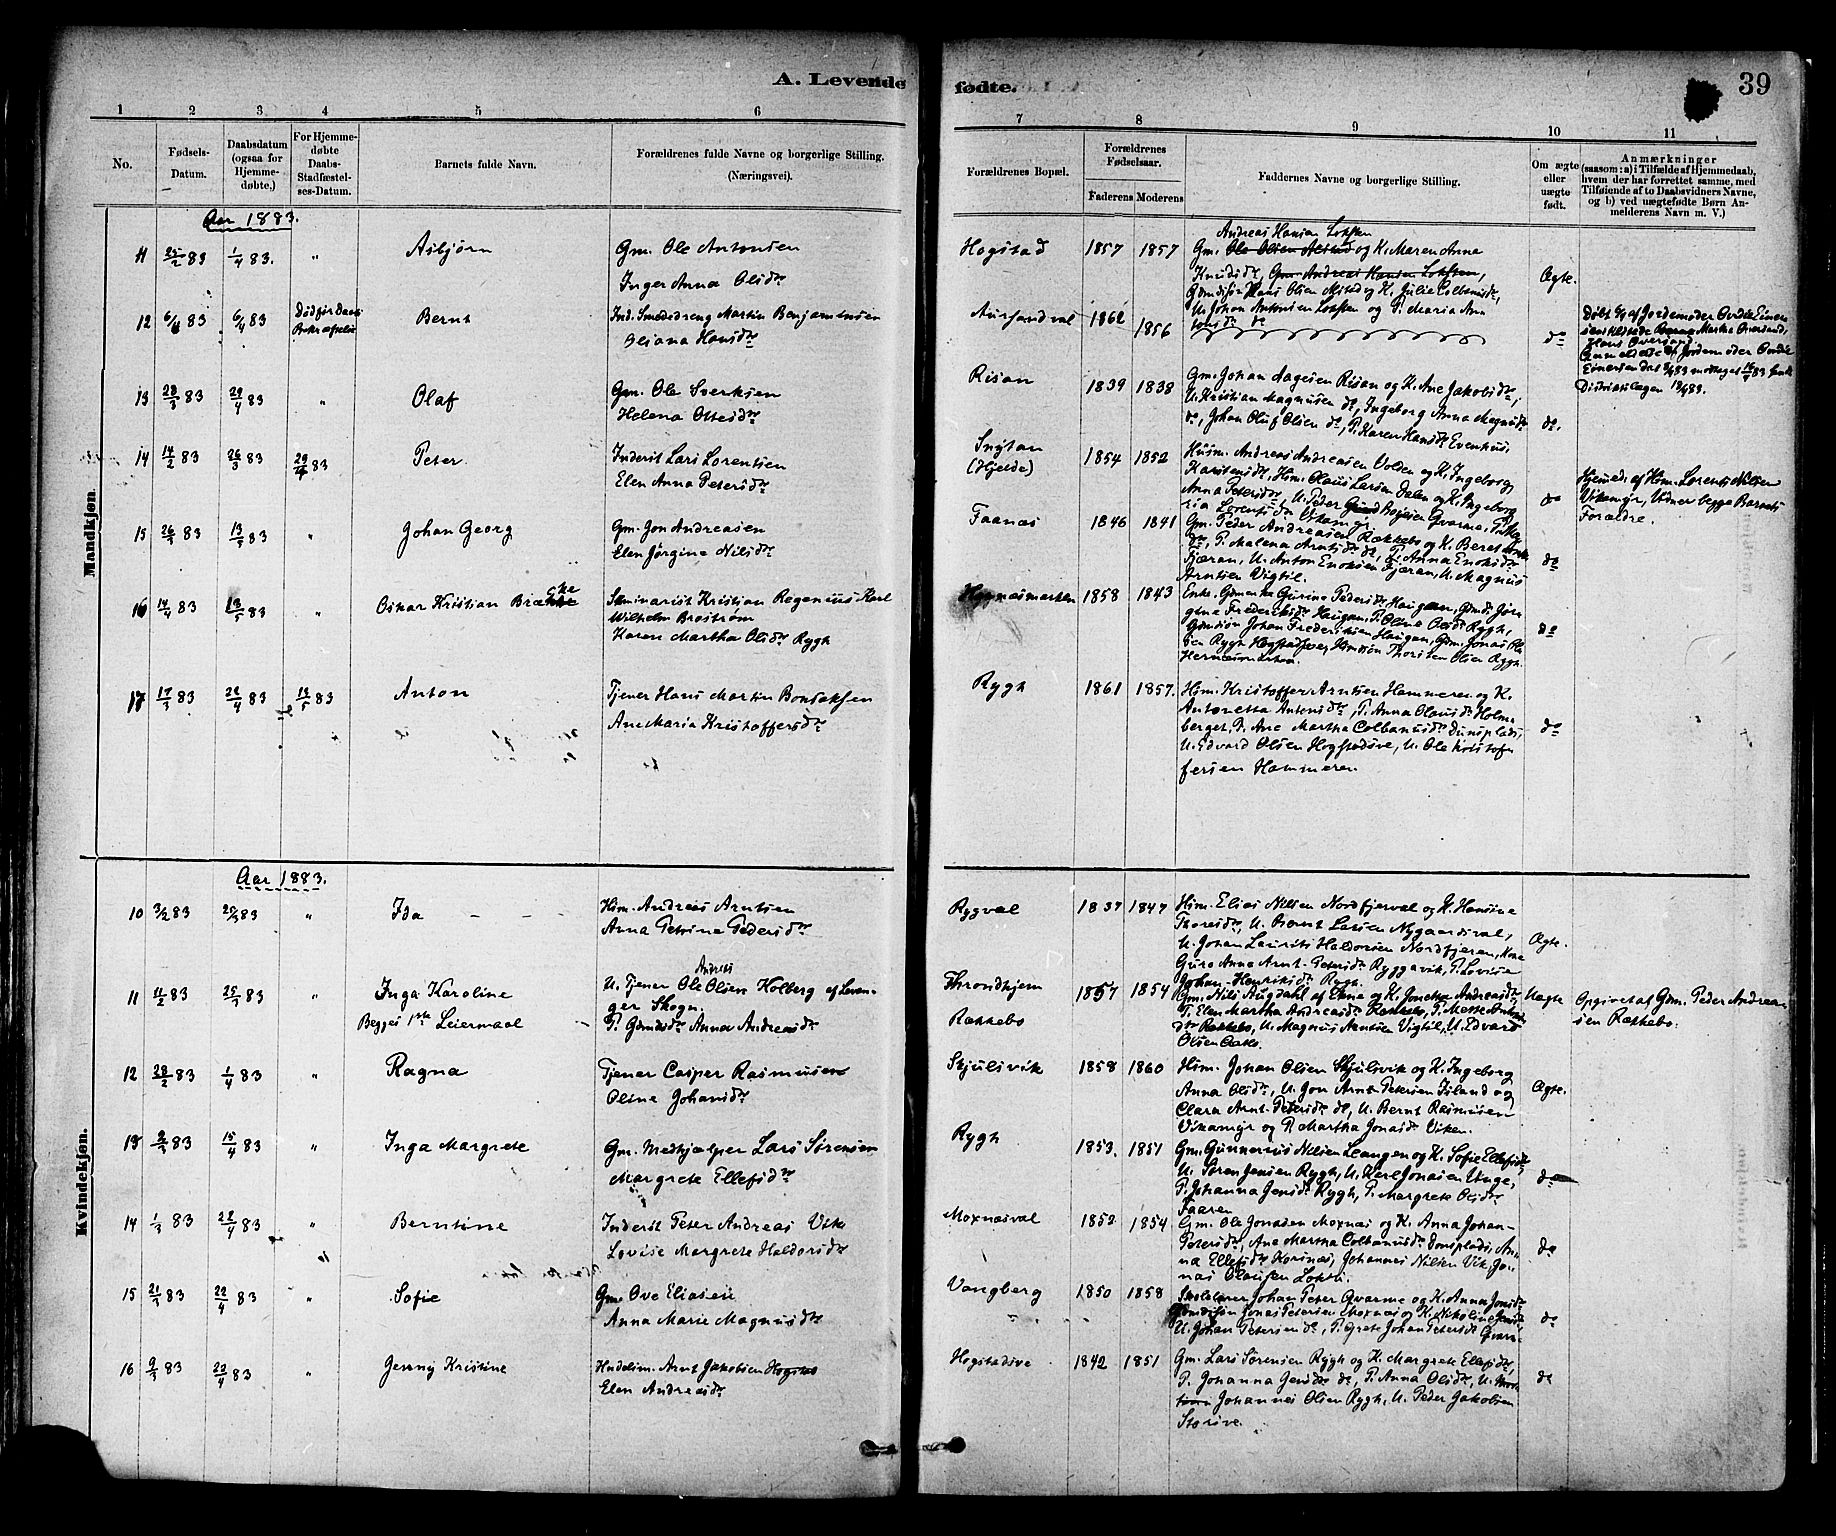 A. Levende fødte.
39
1 2 3 4 5 6 7 8 9 10 11
No.
Fødsels-
Datum.
Daabsdatum
(ogsaa for
Hjemme-
døbte,)
For Hjemme-
døbte
Daabs-
Stadfæstel-
ses-Datum.
Barnets fulde Navn.
Forældrenes fulde Navne og borgerlige Stilling.
(Næringsvei).
Forældrenes Bopæl.
Forældrenes
Fødselsaar.
Faderens Moderens
Faddernes Navne og borgerlige Stilling.
Om ægte
eller
uægte
født.
Anmærkninger
(saasom: a) i Tilfælde af Hjemmedaab,
hvem der har forrettet samme, med
Tilføiende af to Daabsvidners Navne,
og b) ved uægtefødte Børn An-
melderens Navn m. V.)
Mandkjøn.
Aar 1883.
11 25/2 83 1/4 83. " Asbjørn
Gm. Ole Antonsen
Inger Anna Olsdtr
Hogstad 1857 1857
Andreas Hansen Loksten
Gm. Ole Olsen Alstad og K. Maren Anna
Knudsdtr, Gm. Andreas Hansen Loksten,
Gmdsøn Hans Olsen Alstad og K. Julie Colbansdtr,
U. Johan Antonsen Loksten og P. Maria Ann
Ægte.
12 6/4 83 6/4 83 Bernt
Ind. Smededreng Martin Benjaminsen
Oliana Hansdtr
Aursandval 1862 1856
do
Døbt af Jordemoder
13 28/3 83 29/4 83 " Olaf
Gm. Ole Sverksen
Helena Ottesdtr
Risan 1839 1838
Gm. Johan Aagesen Risan og K. Ane Jakobsdtr,
U. Kristian Magnusen do, Ingeborg Anna Magnusdtr
do, Johan Oluf Olsen do, P. Karen Hansdtr Evenhus.
do.
14 14/2 83 26/3 83 29/4 83 Peter
Inderst Lars Lorentsen
Elen Anna Petersdtr
(Hjelde) 1854 1852
Husm. Andreas Andreasen Volden og K. Ingeborg
Karstensdtr, Hsm. Olaus Larsen Dalen og K. Ingeborg
Anna Petersdtr, U. Peter
do
Hjemmed. af Hsm. Lorents Nilsen
Vikamyr, Vidner begge Barnets
Forældre.
15 26/3 83 13/5 83 " Johan Georg
Gm. Jon Andreasen
Elen Jørgine Nilsdtr
Faanes 1846 1841
Gm. Peter Andreasen Røkkebo og K. Beret
do, P. Malena Arntsdtr do, P. Anna Enoksdtr
Fjæran, U. Anton Enoksen Fjæran, U. Magnus
Arntsen Vigtil.
do
16 14/4 83 13/5 83 " Oskar Kristian Brække
Seminarist Kristian Regenius Karl
Wilhelm Brostrøm
Karen Martha Olsdtr Rygh
1858 1843
Enke Gurine Pedersdtr Haugan,
gine Frederiksdtr Haugan, P. Oline Olsdtr Rygh,
Gmdsøn Johan Frederiksen Haugan, Gm. Jonas Ol-
sen Rygh Hogstadsve, Hsmdsøn Thorsten Olsen Rygh
do
17 17/3 83 29/4 83 13/5 83 Anton
Tjener Hans Martin Bonsaksen
Ane Maria Kristoffersdtr
Rygh 1861 1857.
Hsm. Kristoffer Arntsen Hammeren og K.
Antonetta Antensdtr, P. Anna Olausdtr Holm-
berget, P. Ane Martha Colbanusdtr Dunsplads,
U. Edvard Olsen Hogstadsve, U. Ole Kristof
fersen Hammeren.
do
Kvindekjøn.
Aar 1883.
10 3/2 83 25/3 83 " Ida
Hsm. Andreas Arntsen
Anna Petrina Pedersdtr
Rygval 1837 1847
Hsm. Elias Nilsen Nordfjerval og K. Hansine
Thoresdtr, U. Bernt Larsen Nygaardsval,
U. Johan Laurits Haldorsen Nordfjeren, Kone
Guro Anna Arnt-Petersdtr Ryggavik, P. Lovise
Johan-Henriksdtr Rygh.
Ægte.
11 11/2 83 25/3 83 " Inga Karoline
Begges 1ste Leiermaal
U. Tjener Ole Andreas Olsen Kolberg af Levan-
ger Skogn
P. Gmdsdtr Anna Andreasdtr
Throndhjem
Røkkebo
1857 1854
Gm. Nils Augdahl af Ekne og K. Jonetta Andreasdtr
P. Elen Martha Andreasdtr Røkkebo, P. Mette
do Røkkebo, U. Magnus Arntsen Vigtil, U. Edvard
Olsen
Uægte
Opgivet af Gm. Peder Andrea-
sen Røkkebo.
12 28/2 83 1/4 83 " Ragna
Tjener Casper Rasmussen
Oline Johansdtr
Skjulsvik 1858 1860
Hsm. Johan Olsen Skjulsvik og K. Ingeborg
Anna Olsdtr, U. Jon Arnt-Petersen Island og
Clara Arnt-Petersdtr do, U. Bernt Rasmusen
Vikamyr og P. Martha Jonasdtr Viken.
Ægte.
13 2/3 83 15/4 83 " Inga Margrete
Gm. Medhjælper Lars Sørensen
Margrete Ellefsdtr
Rygh 1853. 1851
Gm. Gunnerius Nilsen Leangen og K. Sofie Ellefsdtr
U. Søren Jensen Rygh, U. Karl Jonasen Unge,
P. Johanna Jensdtr Rygh, P. Margrete Olsdtr
Faaren
do
14 1/3 83 22/4 83 " Berntine
Inderst Peter Andreas Vik
Lovise Margrete Haldorsdtr
Moxnæsval 1852 1854
Gm. Ole Jonasen Moxnæs og K. Anna Johan-
Petersdtr, Ane Martha Colbanusdtr Donsplads, An-
na Ellefsdtr Korsnæs, Johannes Nilsen Vik, Jo-
nas Olausen Loksti.
do
15 21/3 83 22/4 83 " Sofie
Gm. Ove Eliasen
Anna Marie Magnusdtr
Vangberg 1850 1858
Skolelærer Johan Peter Qvarme og K. Anna Jonsdtr
Gmdsøn Jonas Petersen Moxnæs og K. Nikoline Jensdtr
U. Johan Petersen do, P. Grete Johan Petersdtr
do
16 9/3 83 22/4 83 " Jenny Kristine
Hudelsm. Arnt Jakobsen Hogstad
Elen Andreasdtr
Hogstadsve 1842 1851
Gm. Lars Sørensen Rygh og K. Margrete Ellefsdtr
P. Johanna Jensdtr do, P. Anna Olsdtr, U.
Johannes Olsen Rygh, U. Peder Jakobsen
Storsve.
do